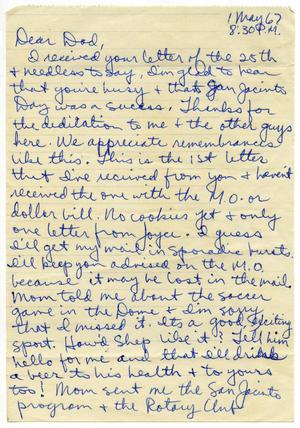 1 May 67
8:30 P.M.
Dear Dad,
I received your letter of the 25th
& needless to say, I'm glad to hear
that you're busy & that San Jacinto
Day was a success. Thanks for
the dedication to me & the other guys
here. We appreciate remembrances
like this. This is the 1st letter
that I've recieved from you & haven't
received the one with the M.O. or
dollar bill. No cookies yet & only
one letter from Joyce. I guess
I'll get my mail in sporadic bursts.
I'll keep you advised on the M.O.
because it may be lost in the mail.
Mom told me about the soccer
game in the Dome & I'm sorry
that I missed it. Its a good exciting
sport. How'd Shep like it? Tell him
hello for me and that I'll drink
a beer to his health & to yours
too! Mom sent me the San Jacinto
program & the Rotary Club